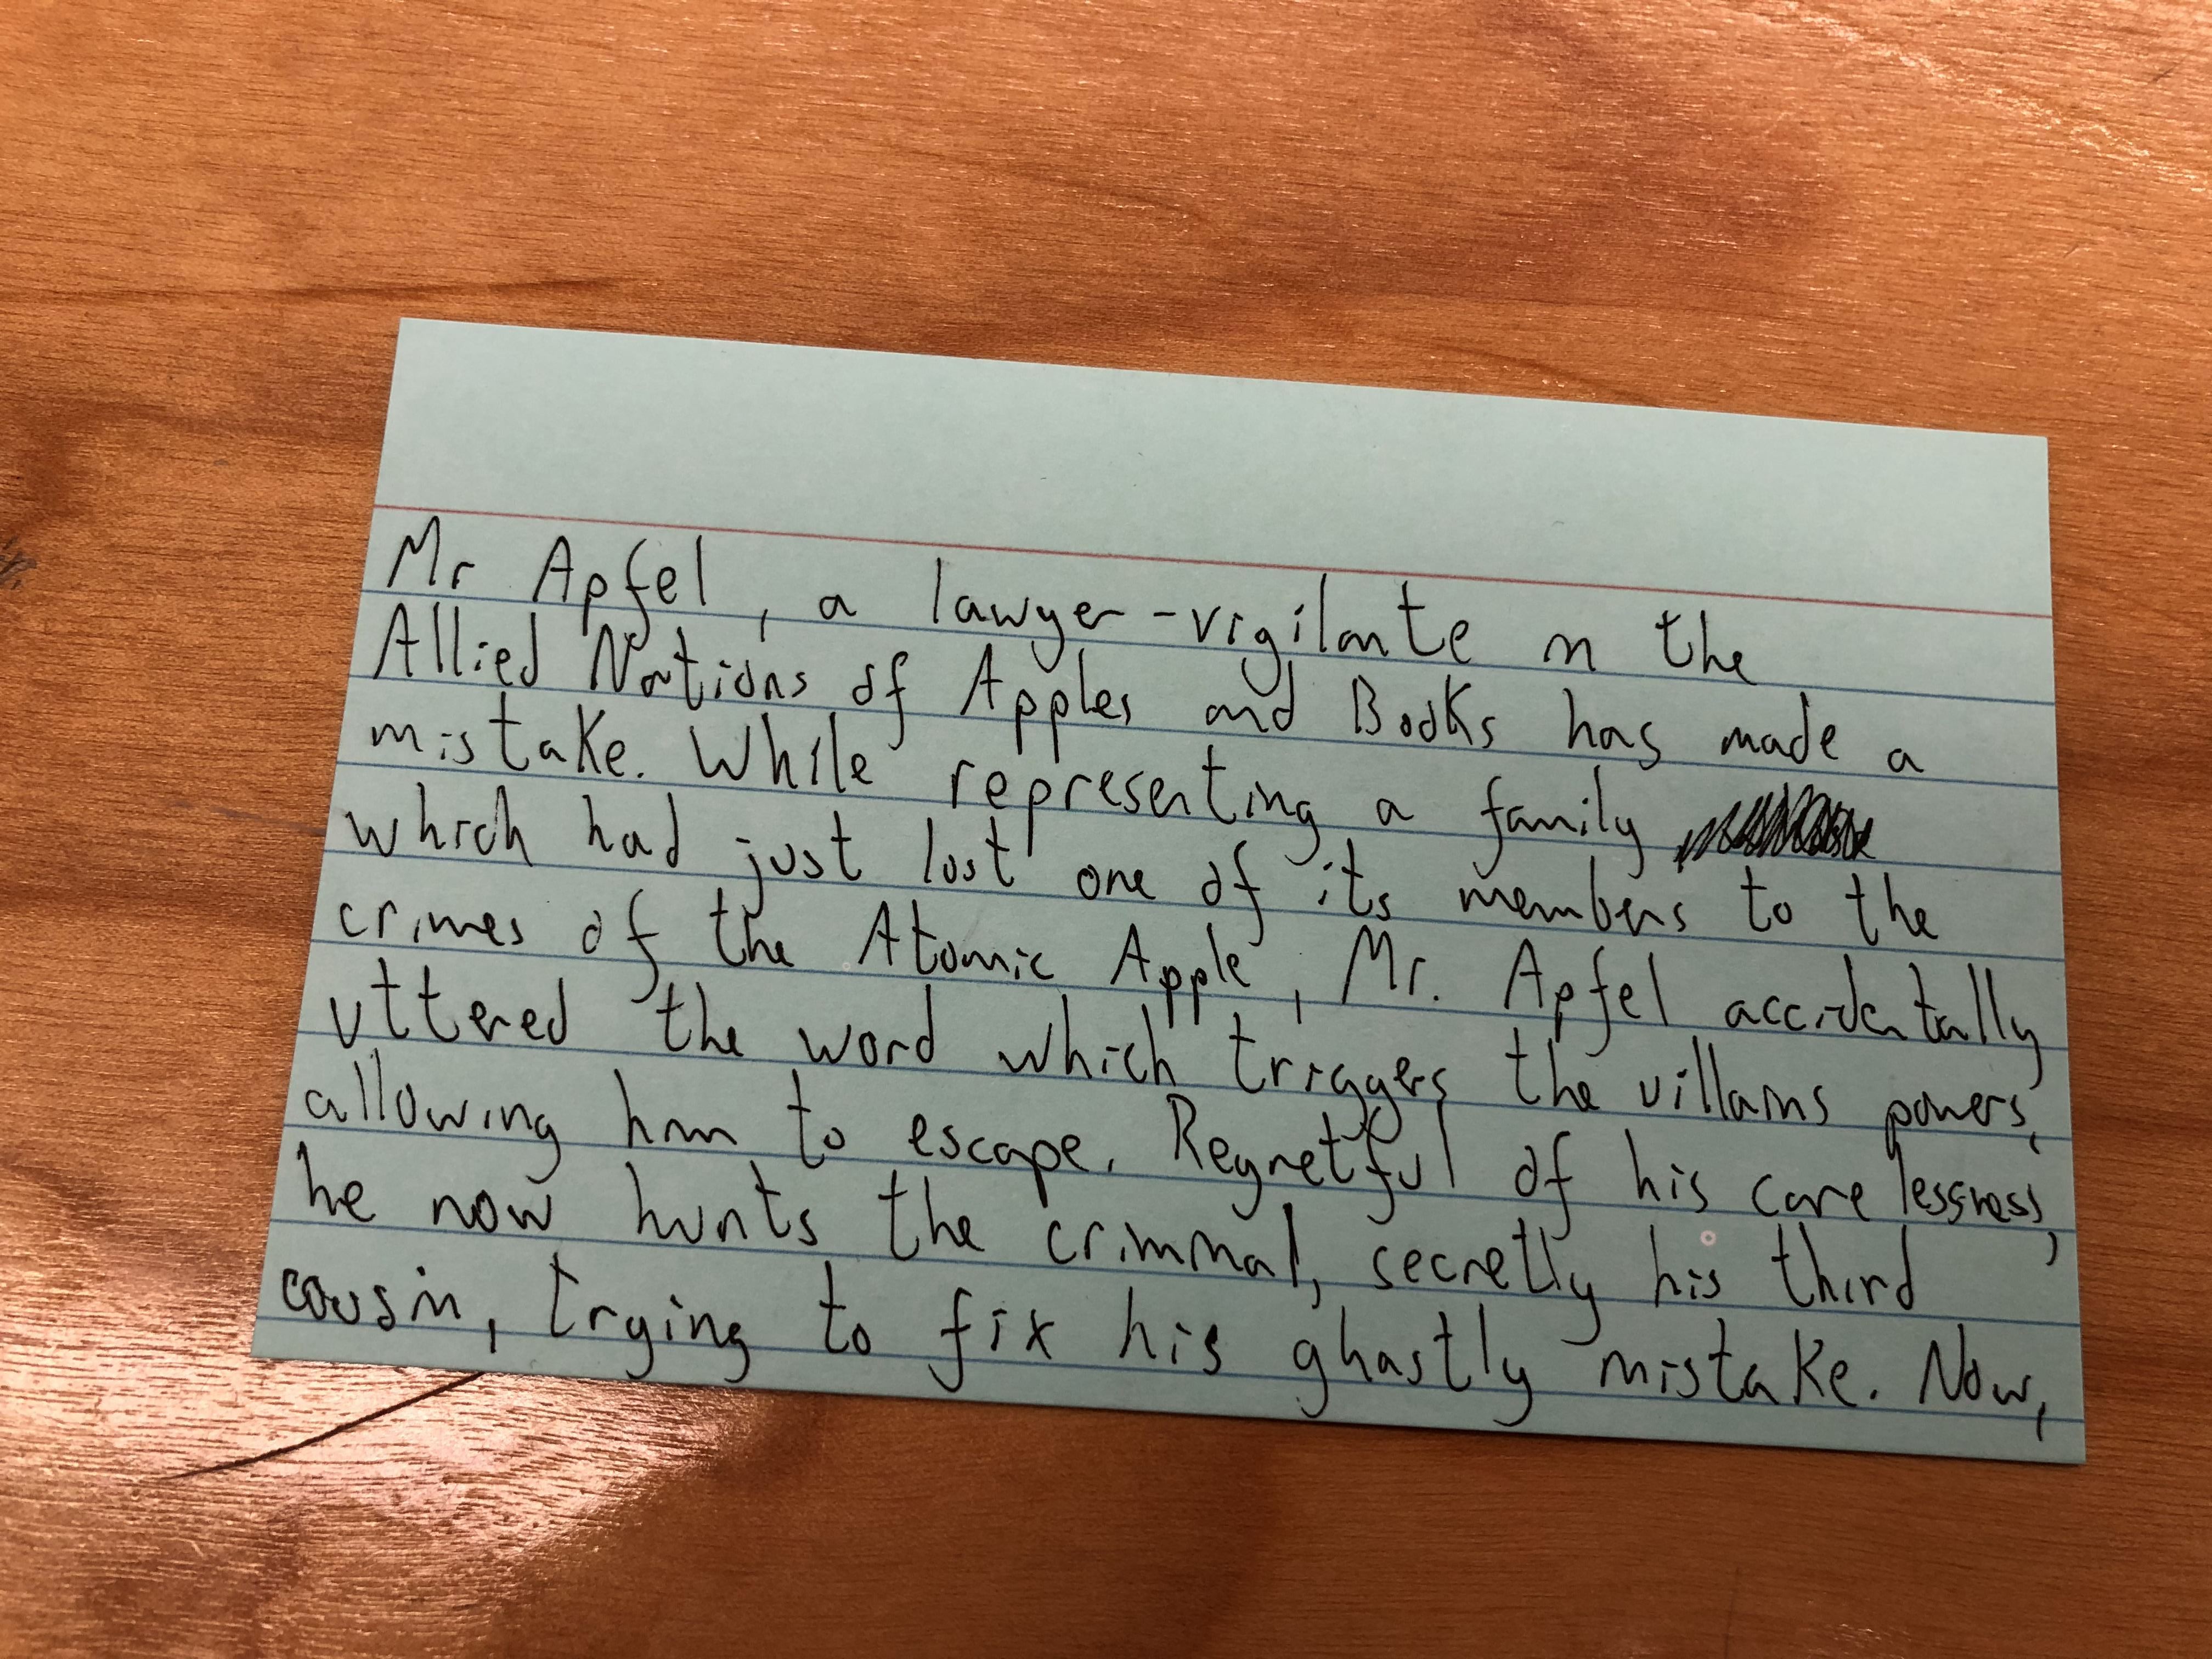 Mr Apfel, a lawyer-vigilante in the
Allied Nations of Apples and Books has made a
mistake. While representing a family
which had just lost one of its members to the
crimes of the Atomic Apple, Mr. Apfel accidentally
uttered the word which triggers the villains powers,
allowing him to escape. Regretful of his carelessness,
he now hunts the criminal, secretly his third
cousin, trying to fix his ghastly mistake. Now,